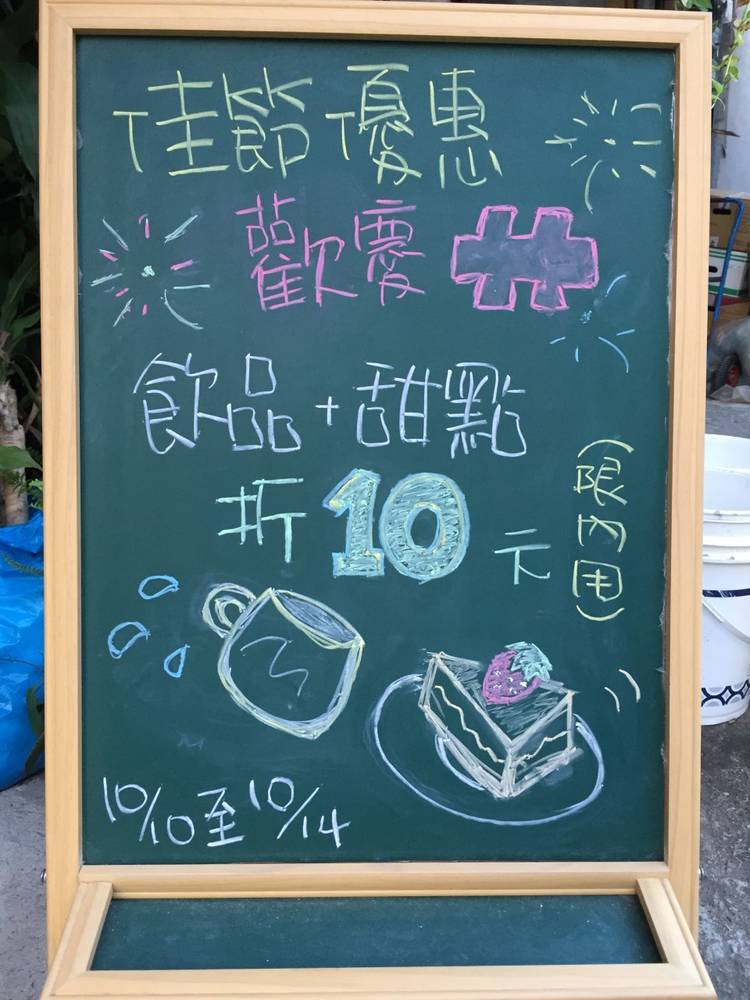 佳節優惠
歡慶卄
飲品+甜點
折10元
(限內用)
10/10至10/14